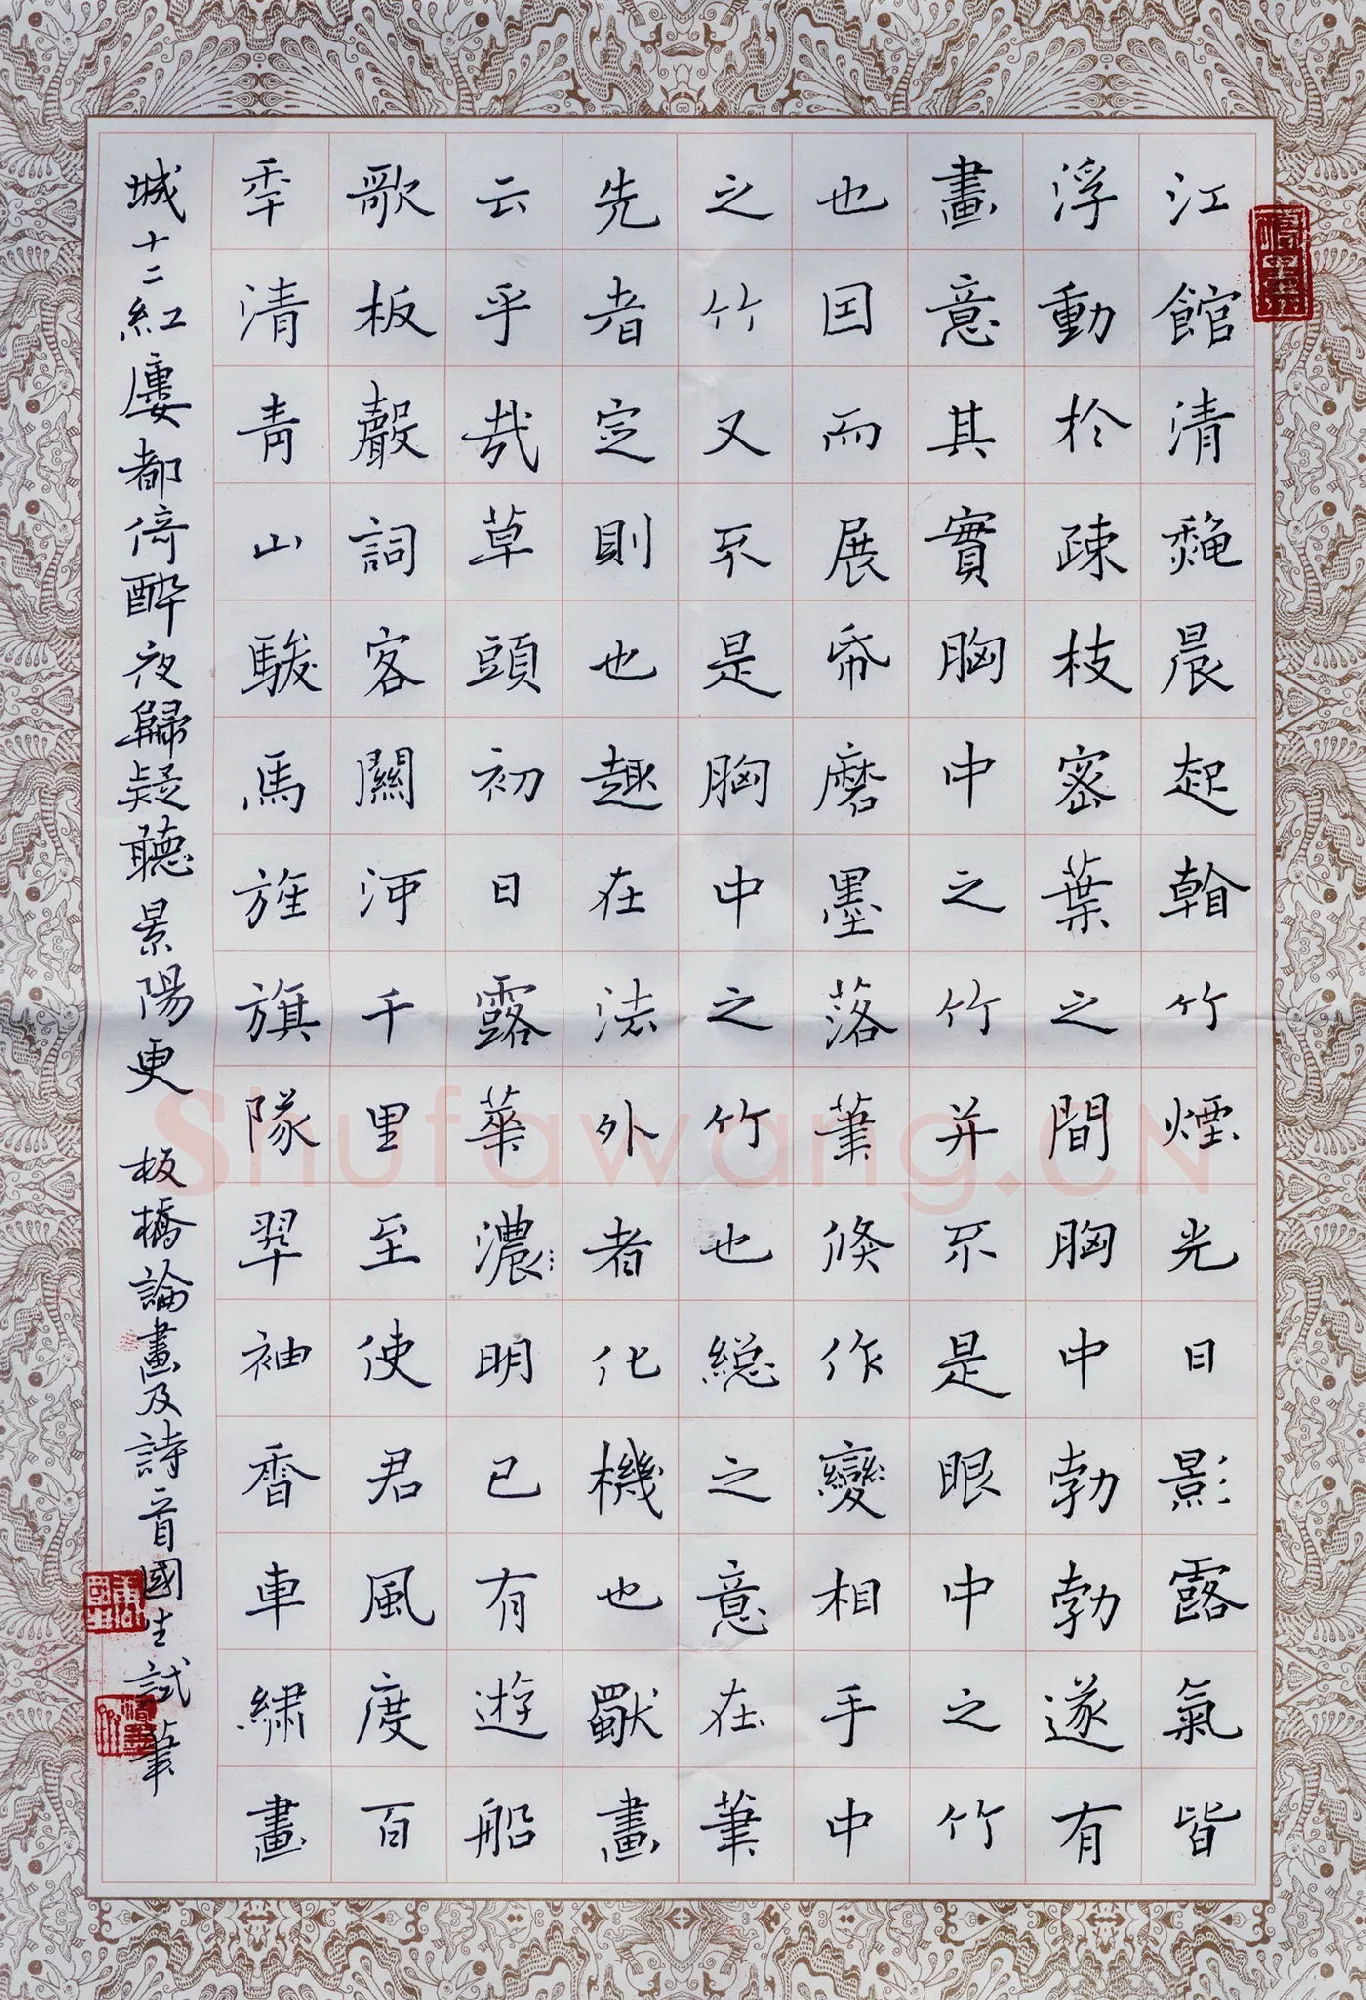 江館清龝晨起看竹煙光日影露氣皆
浮動於疎枝密葉之間胸中勃勃遂有
畫意其實胸中之竹并不是眼中之竹
也因而展帋磨墨落筆倏作變相手中
之竹又不是胸中之竹也緫之意在筆
先者定則也趣在法外者化機也獨畫
云乎哉草頭初日露華濃明已有遊船
歌板聲詞客關河千里至使君風度百
年清青山駿馬旌旗隊翠袖香車繡畫
城十二紅廔都倚醉夜歸疑聽景陽更 板橋論畫及詩一首國生試筆
Shufawang.CN